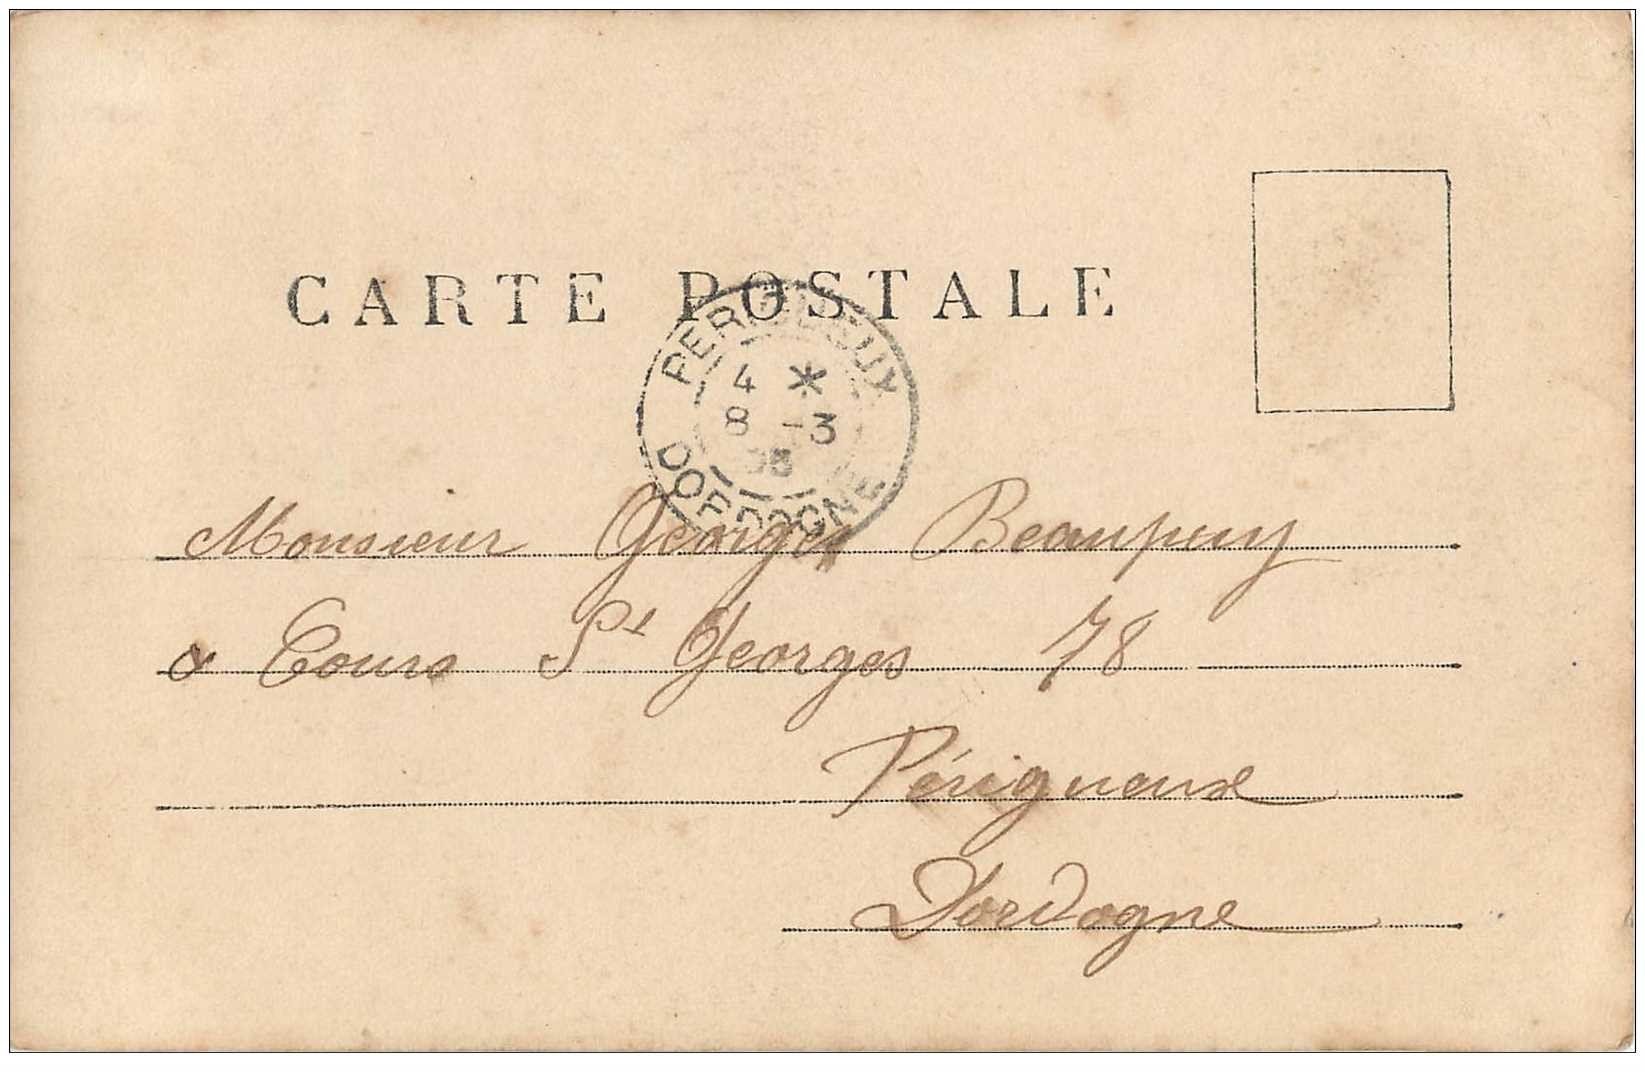 CARTE POSTALE
PERIGUEUX
4 *
8 -3
DORDOGNE
Monsieur Georges Beaupuy
Cours St Georges 78
Périgueux
Dordogne